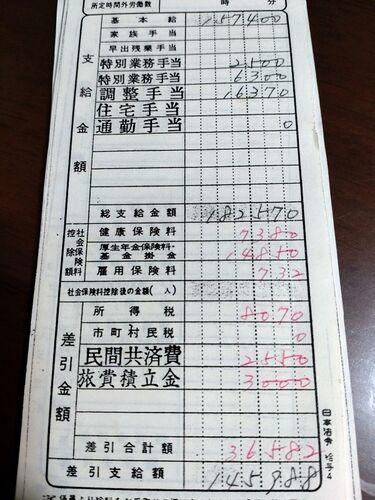 所定時間外労働数 時 分
支給金額
基本給 157400
家族手当
早出残業手当
特別業務手当 2500
特別業務手当 6300
調整手当 16370
住宅手当
通勤手当 0
総支給金額 182570
控除額 社会保険料
健康保険料 7380
厚生年金保険料・基金掛金 14850
雇用保険料 732
社会保険料控除後の金額( 人)
差引金額
所得税 8070
市町村民税 0
民間共済費 2550
旅費積立金 3000
差引合計額 36582
差引支給額 145988
日本法令 給与4